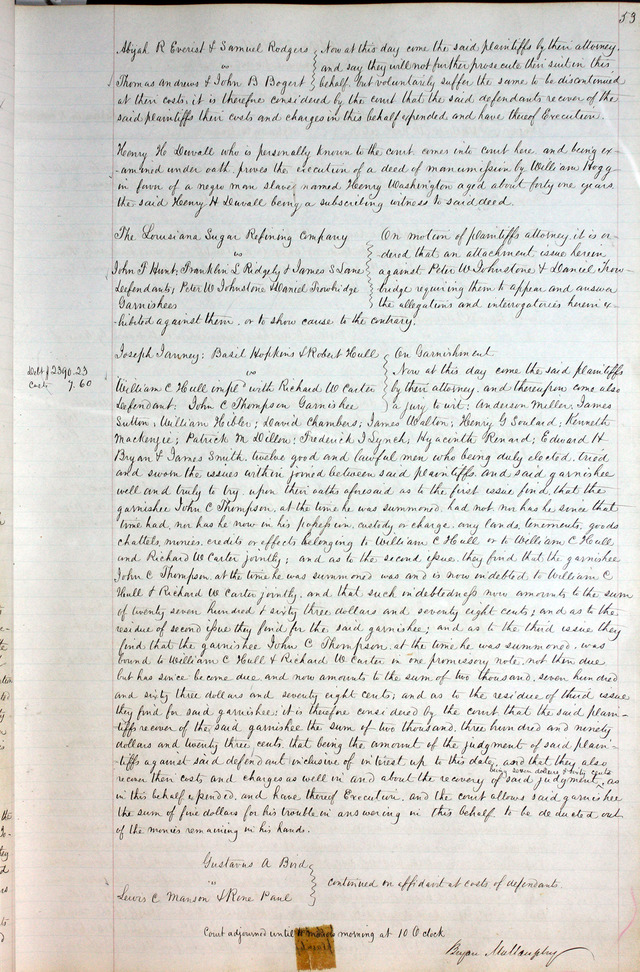 53
Abijah R Everist & Samuel Rodgers Now at this day come the said plaintiffs by their attorney.
vs and say they will not further prosecute their suit in this
Thomas Andrews & John B Bogert behalf. but voluntarily suffer the same to be discontinued
at their costs. it is therefore considered by the court that the said defendants recover of the
said plaintiffs their costs and charges in this behalf expended and have thereof Execution.
Henry H. Duvall who is personally known to the court. comes into court here. and being ex-
amined under oath. proves the execution of a deed of manumission by William Hogg
in favor of a negro man slave named Henry Washington aged about forty one years
the said Henry H Duvall being a subscribing witness to said deed.
The Louisiana Sugar Refining Company On motion of plaintiffs attorney. it is or-
vs dered that an attachment issue herein
John F Hunt; Franklin L Ridgely & James S Lane against Peter W Johnstone & Daniel Trow-
Defendants; Peter W Johnstone & Daniel Trowbridge bridge requiring them to appear and answer
Garnishees the allegations and interrogatories herein ex-
hibited against them. or to show cause to the contrary.
Joseph Janney; Basil Hopkins & Robert Hull On Garnishment
Debt $2390.23 vs Now at this day come the said plaintiffs
Costs 7.60 William C Hull impl^d with Richard W Carter by their attorney. and thereupon come also
Defendant; John C Thompson Garnishee a jury to wit; Anderson Miller; James
Sutton; William Hibler; David Chambers; James Walton; Henry G Soulard; Kenneth
Mackenzie; Patrick M Dillon; Frederick J Lynch; Hyacinth Renard; Edward H
Bryan & James Smith. twelve good and lawful men who being duly elected. tried
and sworn the issues within joined between said plaintiffs and said garnishee
well and truly to try. upon their oaths aforesaid as to the first issue find, that the
garnishee John C Thompson. at the time he was summoned. had not nor has he since that
time had. nor has he now in his possession custody or charge. any lands. tenements. goods
chattels. monies. credits or effects belonging to William C Hull or to William C Hull
and Richard W Carter jointly; and as to the second issue. they find that the garnishee
John C Thompson. at the time he was summoned was and is now indebted to William C
Hull & Richard W Carter jointly. and that such indebtedness now amounts to the sum
of twenty seven hundred & sixty three dollars and seventy eight cents; and as to the
residue of second issue they find for the said garnishee; and as to the third issue they
find that the garnishee John C Thompson. at the time he was summoned. was
bound to William C Hull & Richard W Carter in one promissory note, not then due
but has since become due and now amounts to the sum of two thousand. seven hundred
and sixty three dollars and seventy eight cents; and as to the residue of third issue
they find for said garnishee; it is therefore considered by the court that the said plain-
tiffs recover of the said garnishee the sum of two thousand. three hundred and ninety
dollars and twenty three cents. that being the amount of the judgment of said plain-
tiffs against said defendant inclusive of interest up to this date. and that they also
being seven dollars & sixty cents
recover their costs and charges as well in and about the recovery of said judgment. as
in this behalf expended. and have thereof Execution. and the court allows said garnishee
the sum of five dollars for his trouble in answering in this behalf to be deducted out
of the monies remaining in his hands.
Gustavus A Bird
vs continued on affidavit at costs of defendants.
Lewis C Manson & Rene Paul
Court adjourned until morning at 10 O clock
Bryan Mullanphy